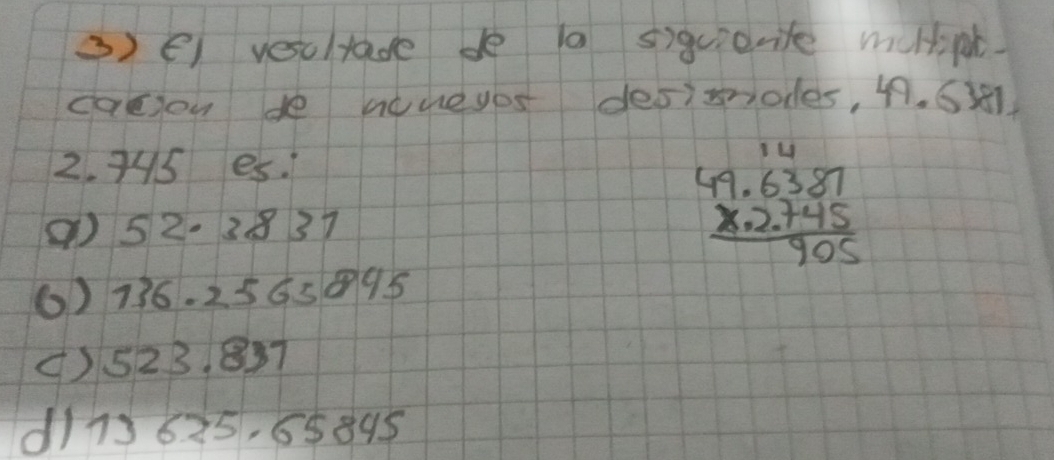 3) El resultade de la siguionite multipli-
cacion de numeyos desimodes, 49.6381,
2.745 es:
a) 52.3831
b) 136.2565845
c) 523.831
d) 13 625.65845
14
49.6381
x.2.745
905